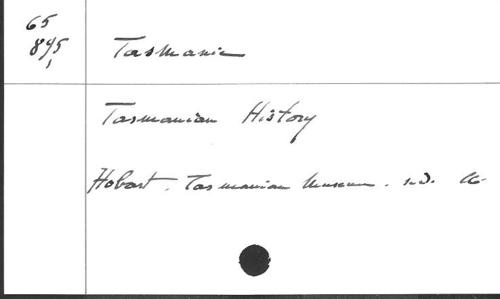 65
895
Tasmania
Tasmanian History
Hobart. Tasmanian Museum. n.d.